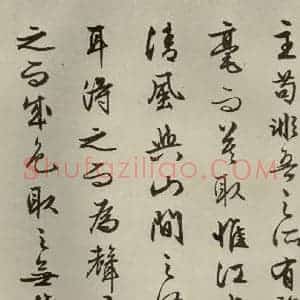 主苟非吾之所有
毫而莫取惟江
清風與山間之
耳得之而為聲
之而成色取之無
Shufaziliao.COM